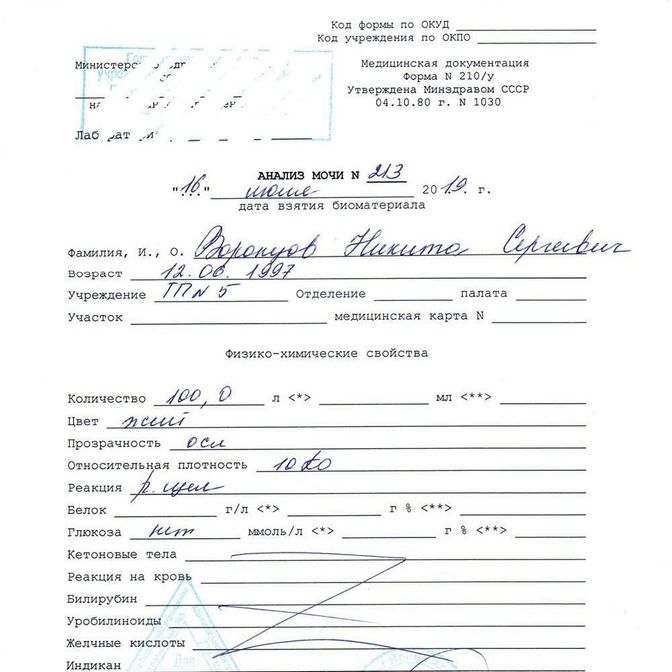 Код формы по ОКУД
Код учреждения по ОКПО
Медицинская документация
Форма N 210/у
Утверждена Минздравом СССР
04.10.80 г. N 1030
АНАЛИЗ МОЧИ N 213
"16" июля 2019. г.
дата взятия биоматериала
Фамилия, И., О. Воронцов Никита Сергеевич
Возраст 12.06.1997
Учреждение ГП№5 Отделение палата
Участок медицинская карта N
Физико-химические свойства
Количество 100,0 л <*> мл <**>
Цвет
Прозрачность
Относительная плотность
Реакция р. щел
Белок г/л <*> г % <**>
Глюкоза нет ммоль/л <*> г % <**>
Кетоновые тела
Реакция на кровь
Билирубин
Уробилиноиды
Желчные кислоты
Индикан
Для